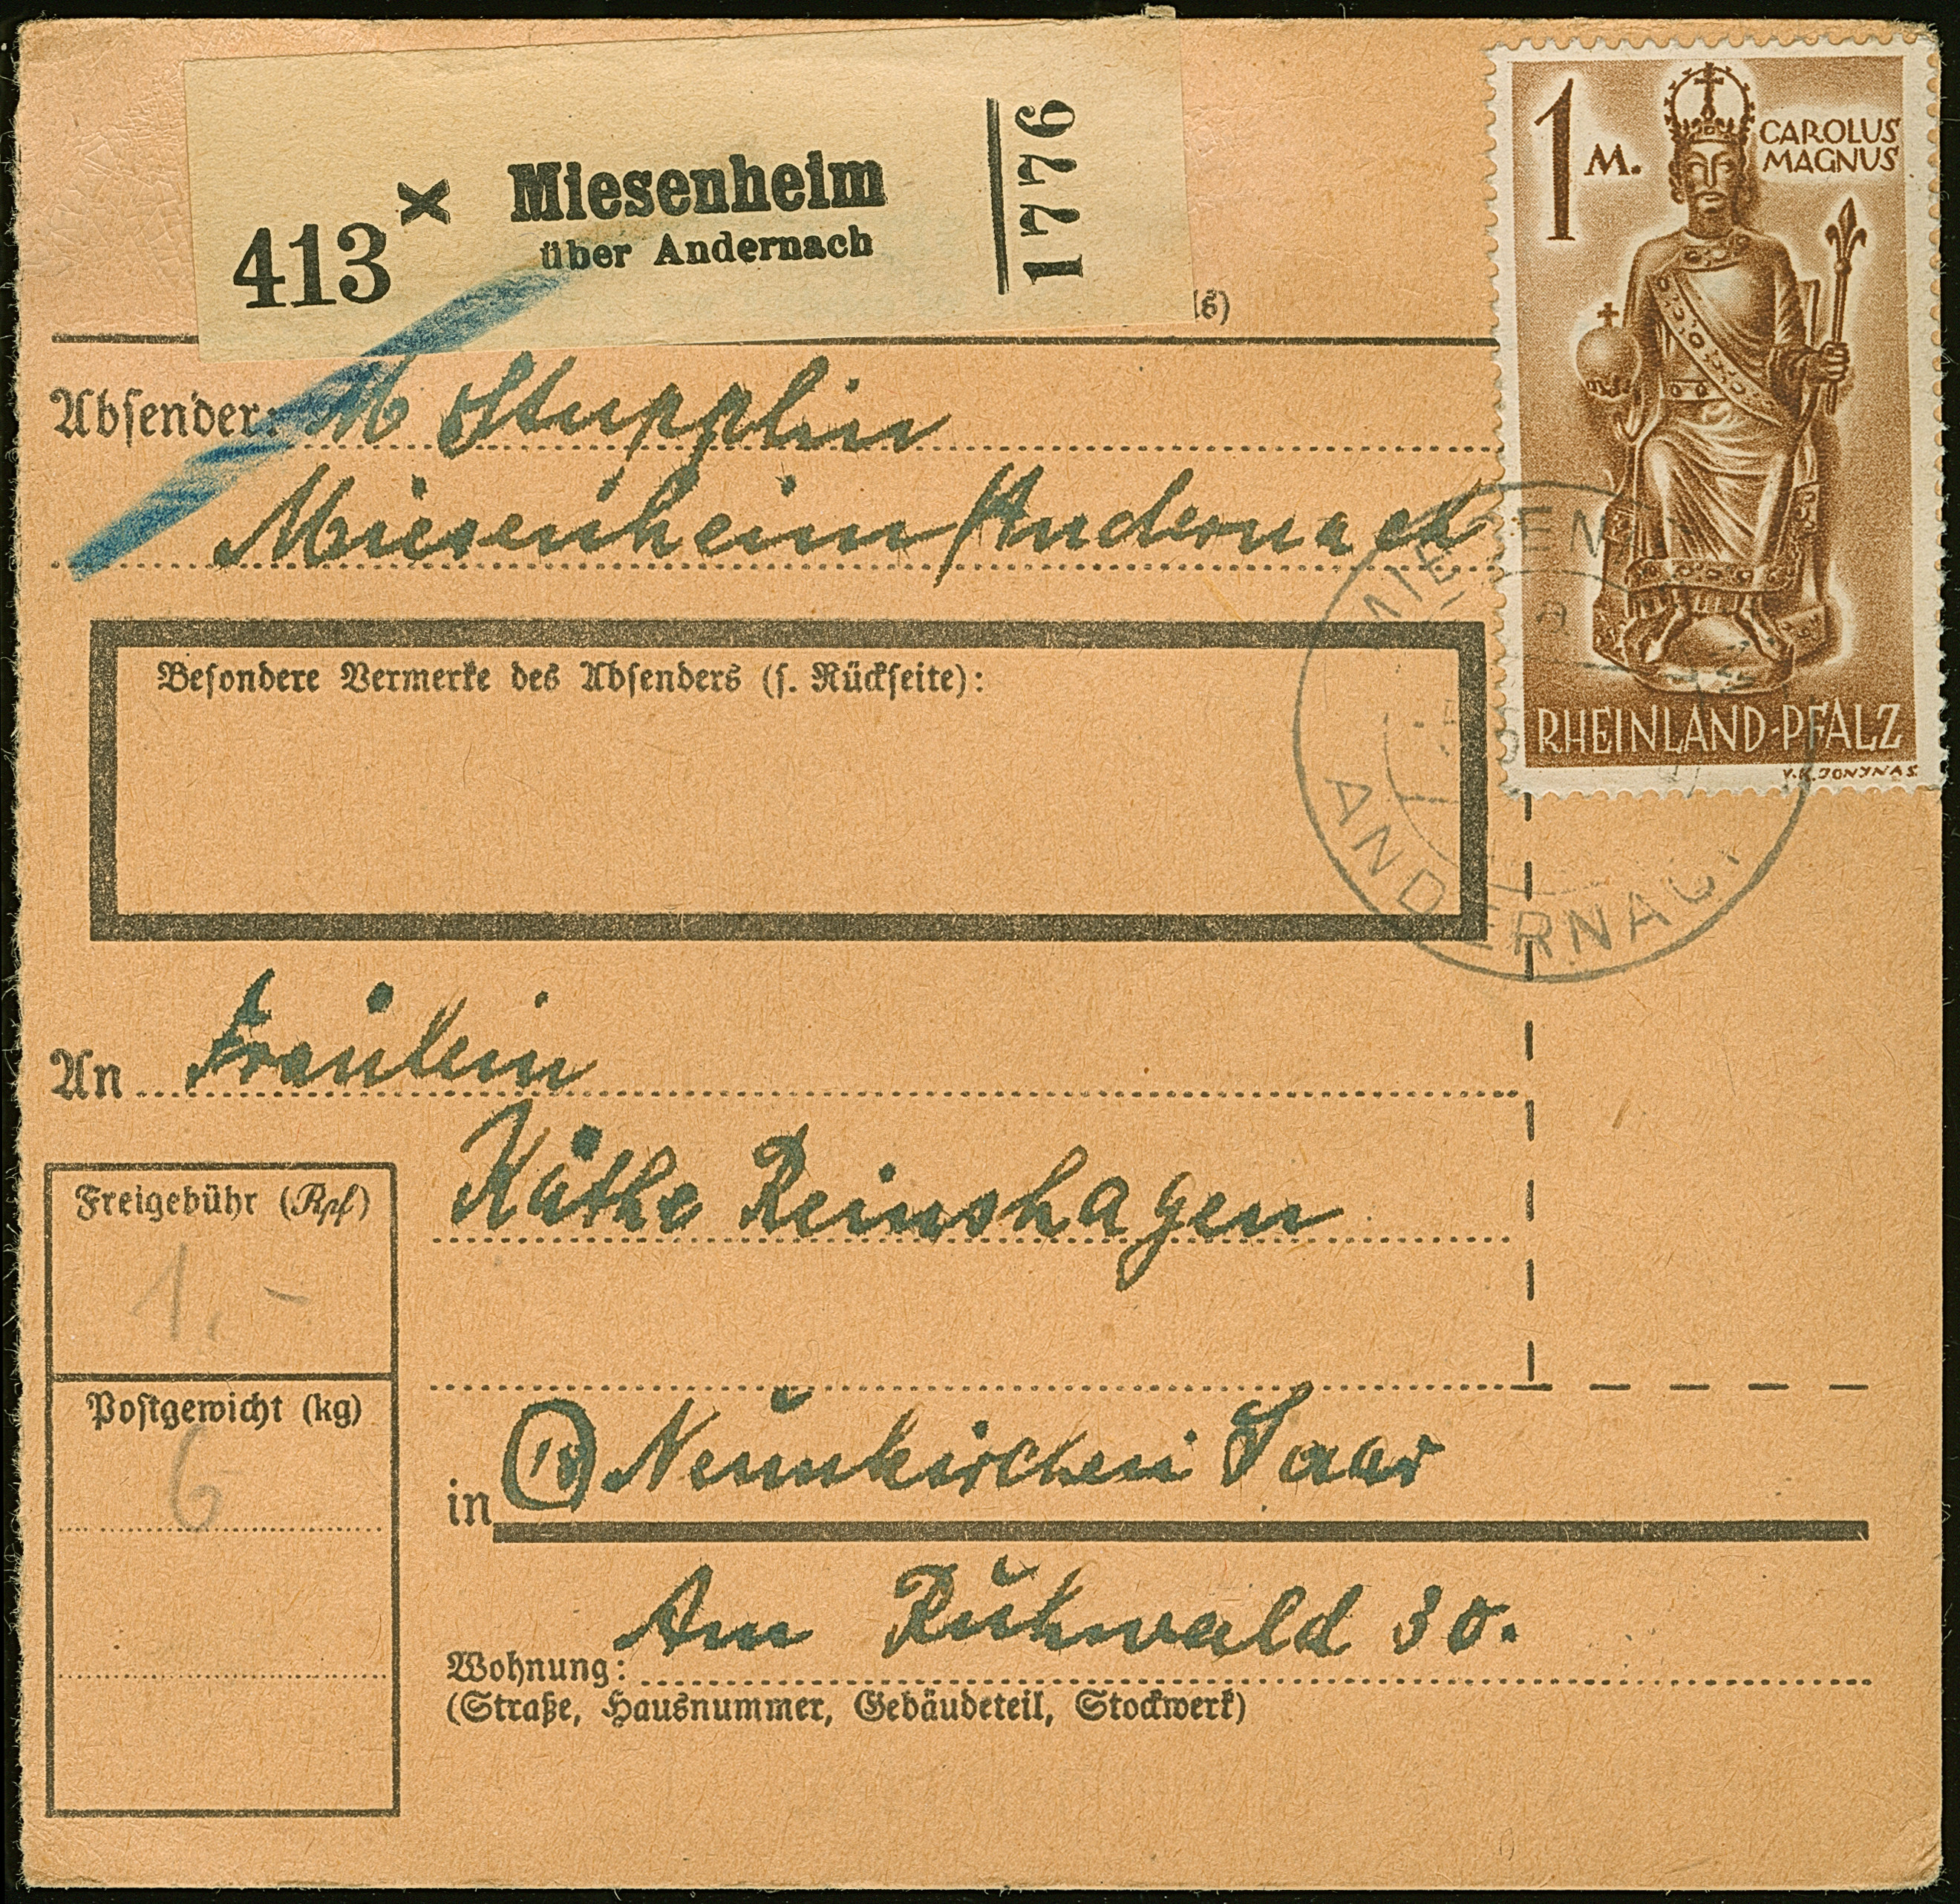 413 x Miesenheim
über Andernach
1776
1 M. CAROLUS
MAGNUS
RHEINLAND-PFALZ
V.K. JONYNAS
Absender: M Stupplin
Miesenheim/Andernach
Besondere Vermerke des Absenders (s. Rückseite):
ANDERNAC
An Fräulein
Käthe Reinshagen
Freigebühr (Rpf)
1,-
Postgewicht (kg)
6
in (18) Neunkirchen Saar
Am Ruhwald 30.
Wohnung:
(Straße, Hausnummer, Gebäudeteil, Stockwerk)